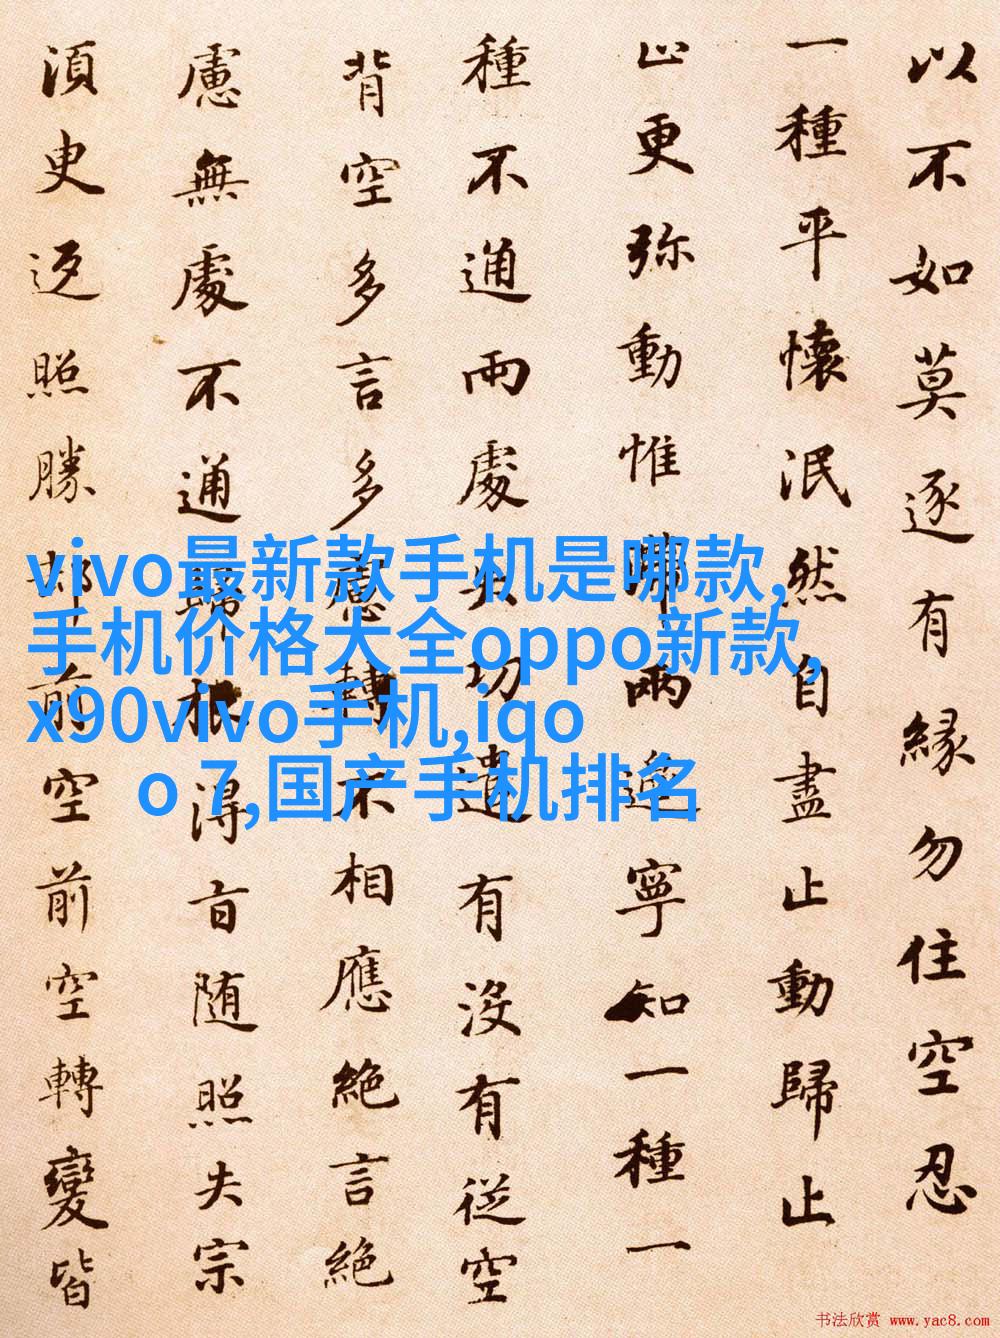 以不如莫逐有緣勿住空忍
一種平懷泯然自盡止動歸止
止更弥動惟兩邊寧知一種一
種不通兩處失功遣有没有從空
背空多言多慮轉不相應絶言絶
慮無處不通歸根得旨随照失宗
須臾返照勝却前空前空轉變皆
vivo最新款手机是哪款,
手机价格大全oppo新款,
x90vivo手机,iqo
o 7,国产手机排名
书法欣赏 www.yac8.com